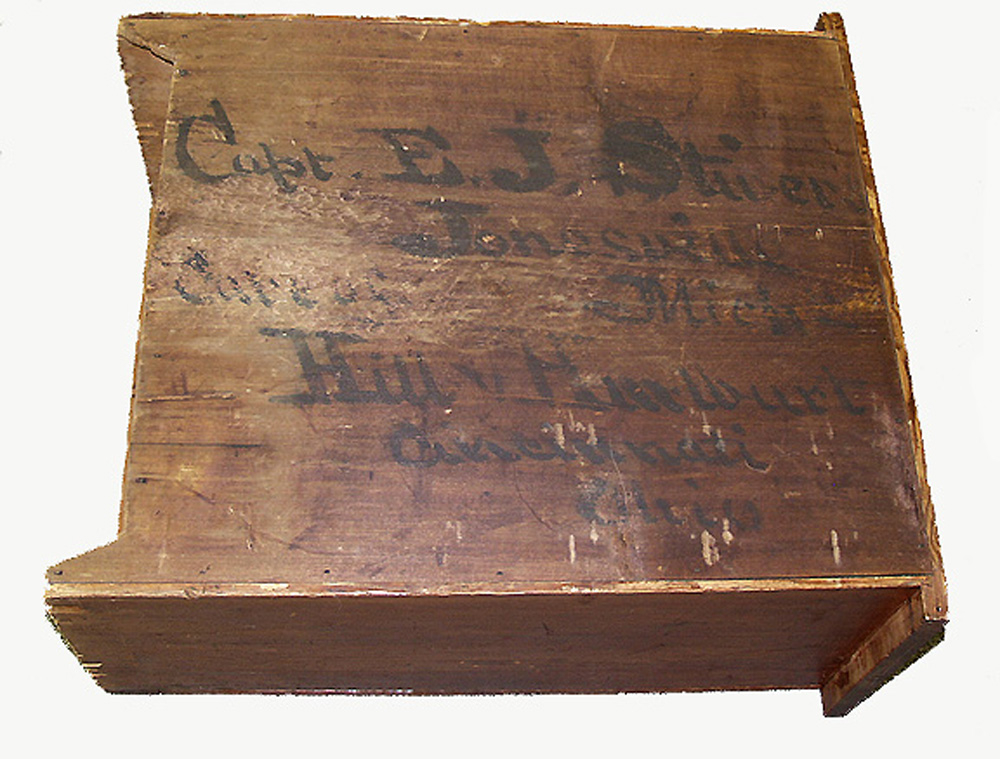 Capt. E. J. Stivers
Jonesville
Care of Mich
Hill &
Cincinnati
Ohio